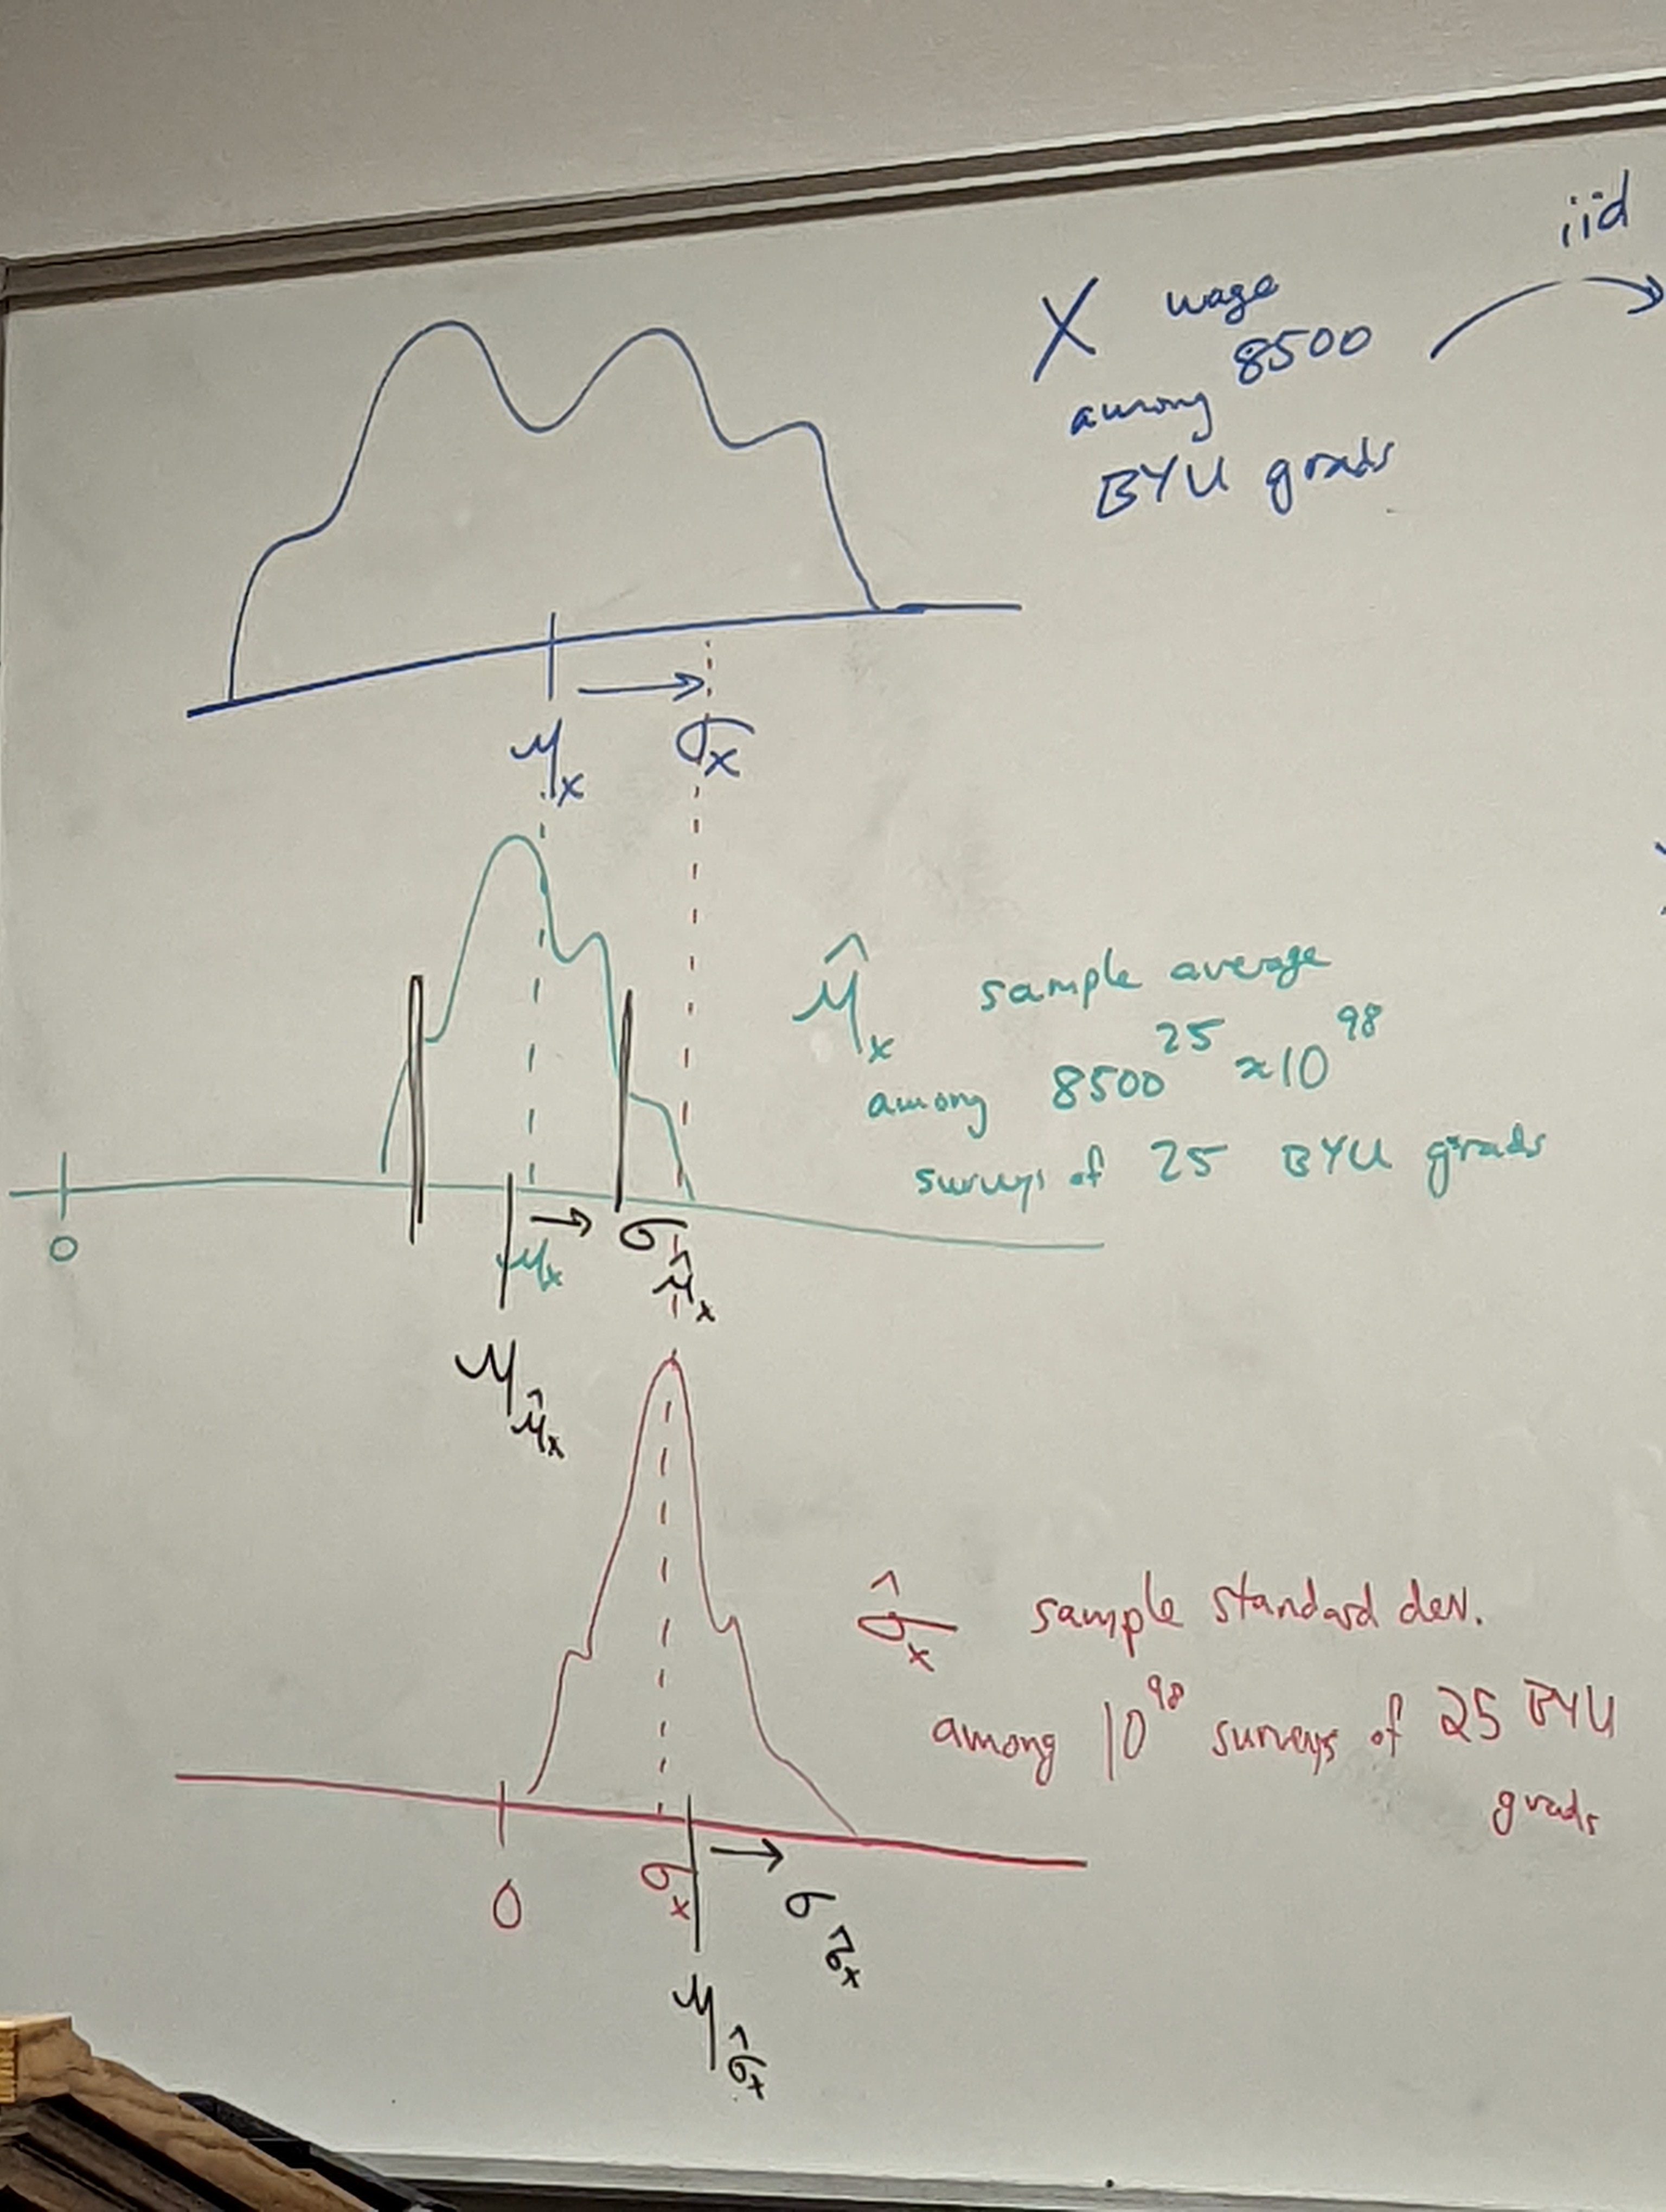 iid
X wage
among 8500
BYU grads
μₓ → σₓ
μ̂ₓ sample average
among 8500²⁵ ≈10⁹⁸
surveys of 25 BYU grads
0
μₓ → σ_μ̂ₓ
μ_μ̂ₓ
σ̂ₓ sample standard dev.
among 10⁹⁸ surveys of 25 BYU
grads
0 σₓ → σ_σ̂ₓ
μ_σ̂ₓ